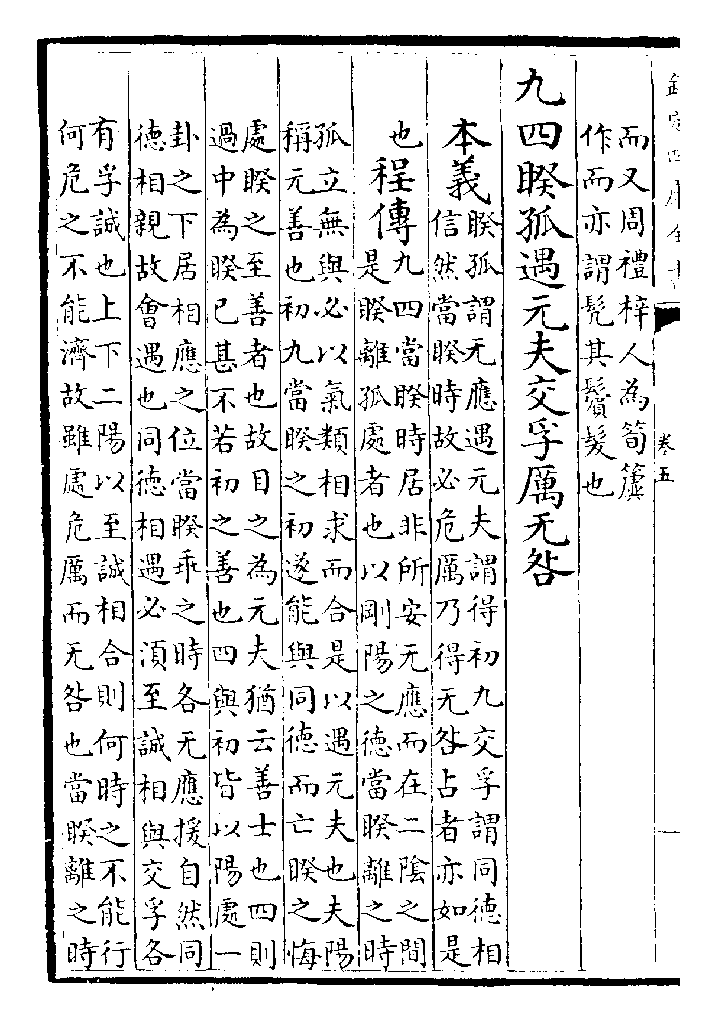 欽定四庫全書
卷五
而又周禮梓人為筍簴
作而亦謂髡其鬚髮也
九四睽孤遇元夫交孚厲无咎
本義
睽孤謂无應遇元夫謂得初九交孚謂同德相
信然當睽時故必危厲乃得无咎占者亦如是
也
程傳
九四當睽時居非所安无應而在二陰之間
是睽離孤處者也以剛陽之德當睽離之時
孤立無與必以氣類相求而合是以遇元夫也夫陽
稱元善也初九當睽之初遂能與同德而亡睽之悔
處睽之至善者也故目之為元夫猶云善士也四則
過中為睽已甚不若初之善也四與初皆以陽處一
卦之下居相應之位當睽乖之時各无應援自然同
德相親故會遇也同德相遇必湏至誠相與交孚各
有孚誠也上下二陽以至誠相合則何時之不能行
何危之不能濟故雖處危厲而无咎也當睽離之時